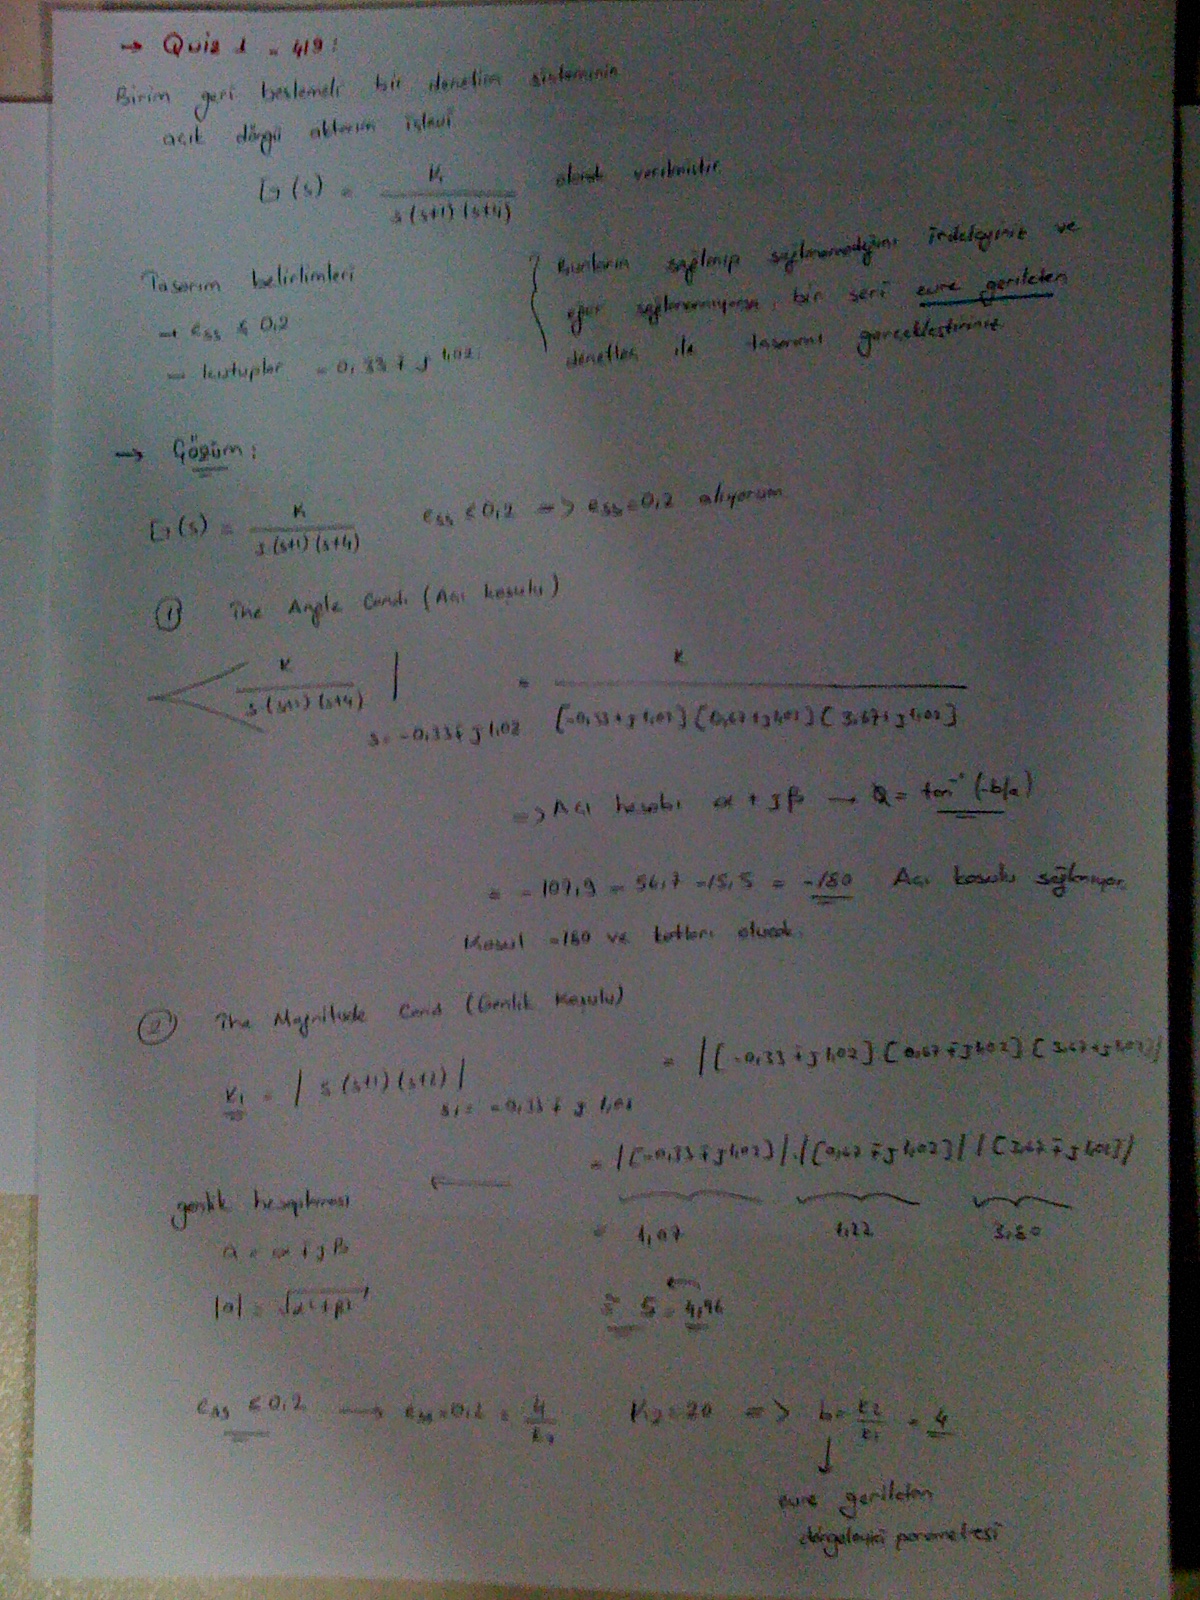 → Quiz 1 = 419:
Birim geri beslemeli bir denetim sisteminin
açık döngü aktarım işlevi
G(s) = K / s(s+1)(s+4) olarak verilmiştir.
Tasarım belirtimleri
→ ess ≤ 0,2
→ kutuplar = 0,33 ∓ j 1,02
Bunların sağlanıp sağlanmadığını irdeleyiniz ve
eğer sağlanmıyorsa, bir seri evre gerileten
denetleç ile tasarımı gerçekleştiriniz.
→ Çözüm:
G(s) = K / s(s+1)(s+4) ess ≤ 0,2 => ess = 0,2 alıyorum
① The Angle Cond. (Açı koşulu)
< K / s(s+1)(s+4) | s = -0,33 ∓ j 1,02 = K / [-0,33+j1,02][0,67+j1,02][3,67+j1,02]
=> Açı hesabı α + jβ → Q = tan⁻¹(-b/a)
= -107,9 - 56,7 - 15,5 = -180 Açı koşulu sağlanıyor.
Koşul -180 ve katları olacak.
② The Magnitude Cond (Genlik Koşulu)
K1 = | s(s+1)(s+2) | s1 = -0,33 ∓ j 1,02 = |[-0,33 ∓ j1,02][0,67 ∓ j1,02][3,67+j1,02]|
= |[-0,33 ∓ j1,02]|.|[0,67 ∓ j1,02]||[3,67 ∓ j1,02]|
genlik hesaplaması ←
= 1,07 1,22 3,80
a = α ∓ jβ
|a| = √α²+β² ≅ 5 ← 4,96
ess ≤ 0,2 → ess = 0,2 = 4/K2 K2 = 20 => b = K2/K1 = 4
↓
evre gerileten
dengeleyici parametresi